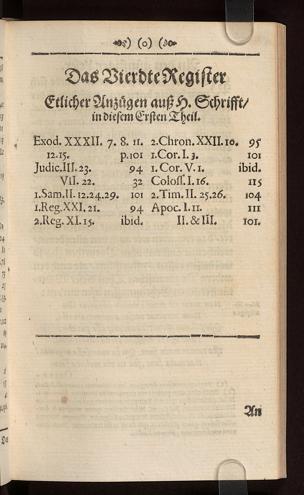 (o)
Das Vierdte Register
Etlicher Anzügen auß H. Schrifft/
in diesem Ersten Theil.
Exod. XXXII. 7. 8. 11.
12.15. p.101
Judic.III.23. 94
VII. 22. 32
1.Sam.II.12.24.29. 101
1.Reg.XXI.21. 94
2.Reg. XI.15. ibid.
2.Chron.XXII.10. 95
1.Cor.I.3. 101
1.Cor.V.1. ibid.
Coloss.I.16. 115
2.Tim.II.25.26. 104
Apoc.I.11. 111
II. & III. 101.
An